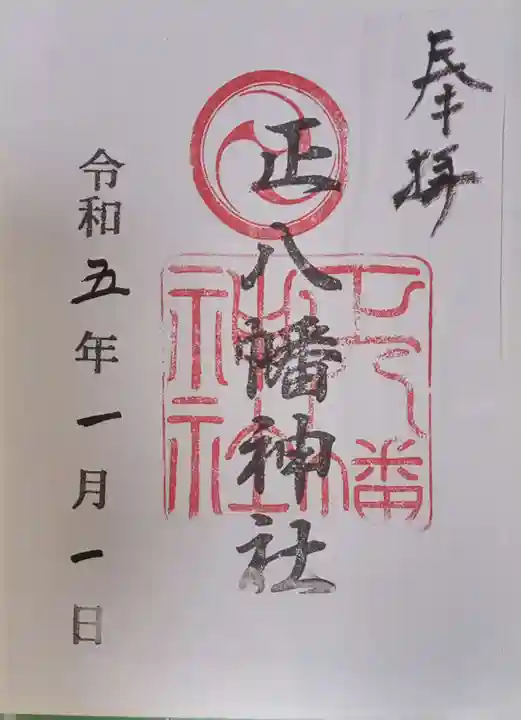 奉拝
正八幡神社
正八幡神社
令和五年一月一日